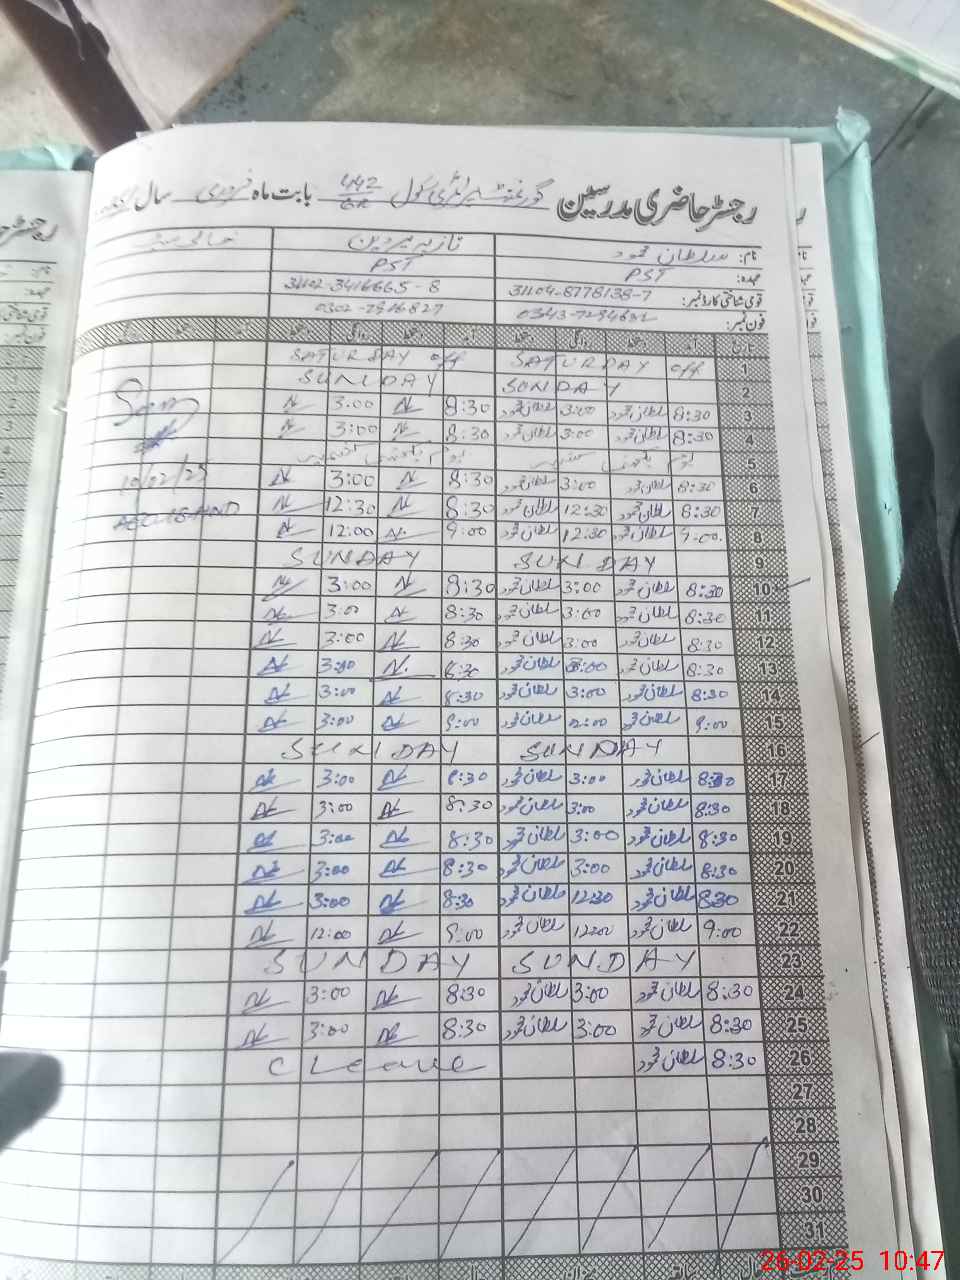 رجسٹر حاضری مدرسین گورنمنٹ پرائمری سکول 442/6R بابت ماہ فروری سال
نام: سلطان محمود نازیہ پروین خالی سیٹ
عہدہ: PST PST
قومی شناختی کارڈ نمبر: 31104-8778138-7 31102-3416665-8
فون نمبر: 0343-7294632 0302-7816827
تاریخ آمد دستخط روانگی دستخط آمد دستخط روانگی دستخط
1 SATURDAY off SATURDAY off
2 SUNDAY SUNDAY
3 8:30 سلطان محمود 3:00 سلطان محمود 8:30 N 3:00 N
4 8:30 سلطان محمود 3:00 سلطان محمود 8:30 N 3:00 N
5 یوم یکجہتی کشمیر یوم یکجہتی کشمیر
6 8:30 سلطان محمود 3:00 سلطان محمود 8:30 N 3:00 N
10/02/25
7 8:30 سلطان محمود 12:30 سلطان محمود 8:30 N 12:30 N
8 9:00 سلطان محمود 12:30 سلطان محمود 9:00 N 12:00 N
9 SUNDAY SUNDAY
10 8:30 سلطان محمود 3:00 سلطان محمود 8:30 N 3:00 N
11 8:30 سلطان محمود 3:00 سلطان محمود 8:30 N 3:00 N
12 8:30 سلطان محمود 3:00 سلطان محمود 8:30 N 3:00 N
13 8:30 سلطان محمود 3:00 سلطان محمود 8:30 N 3:00 N
14 8:30 سلطان محمود 3:00 سلطان محمود 8:30 N 3:00 N
15 9:00 سلطان محمود 12:00 سلطان محمود 9:00 N 3:00 N
16 SUNDAY SUNDAY
17 8:30 سلطان محمود 3:00 سلطان محمود 8:30 N 3:00 N
18 8:30 سلطان محمود 3:00 سلطان محمود 8:30 N 3:00 N
19 8:30 سلطان محمود 3:00 سلطان محمود 8:30 N 3:00 N
20 8:30 سلطان محمود 3:00 سلطان محمود 8:30 N 3:00 N
21 8:30 سلطان محمود 12:30 سلطان محمود 8:30 N 3:00 N
22 9:00 سلطان محمود 12:00 سلطان محمود 9:00 N 12:00 N
23 SUNDAY SUNDAY
24 8:30 سلطان محمود 3:00 سلطان محمود 8:30 N 3:00 N
25 8:30 سلطان محمود 3:00 سلطان محمود 8:30 N 3:00 N
26 8:30 سلطان محمود C Leave
27
28
29
30
31
26-02-25 10:47